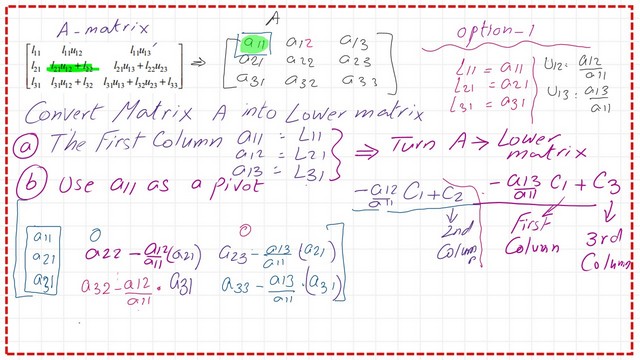 A-matrix
A
option-1
l11 l11u12 l11u13
l21 l21u12 + l22 l21u13 + l22u23
l31 l31u12 + l32 l31u13 + l32u23 + l33
⇒
a11 a12 a13
a21 a22 a23
a31 a32 a33
L11 = a11
L21 = a21
L31 = a31
U12 = a12/a11
U13 = a13/a11
Convert Matrix A into Lower matrix
a The First Column a11 = L11
a12 = L21
a13 = L31
⇒ Turn A → Lower matrix
b Use a11 as a pivot
-a12/a11 C1 + C2
2nd Column
-a13/a11 C1 + C3
First Column
3rd Column
a11 0 0
a21 a22 - a12/a11 (a21) a23 - a13/a11 (a21)
a31 a32 - a12/a11 · a31 a33 - a13/a11 · (a31)